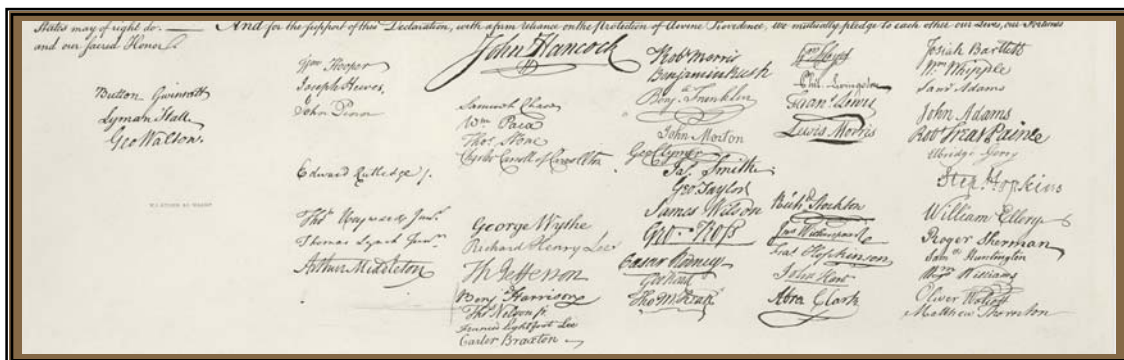 States may of right do. — And for the support of this Declaration, with a firm reliance on the Protection of divine Providence, we mutually pledge to each other our Lives, our Fortunes
and our sacred Honor.
Button Gwinnett
Lyman Hall
Geo Walton.
Wm Hooper
Joseph Hewes,
John Penn
Edward Rutledge /.
Thos Heyward Junr.
Thomas Lynch Junr.
Arthur Middleton
John Hancock
Samuel Chase
Wm Paca
Thos. Stone
Charles Carroll of Carrollton
George Wythe
Richard Henry Lee
Th Jefferson
Benja Harrison
Thos Nelson jr.
Francis Lightfoot Lee
Carter Braxton
Robt Morris
Benjamin Rush
Benja. Franklin
John Morton
Geo Clymer
Jas. Smith
Geo. Taylor
James Wilson
Geo. Ross
Caesar Rodney
Geo Read
Tho M:Kean
Wm Floyd
Phil. Livingston
Frans. Lewis
Lewis Morris
Richd. Stockton
Jno Witherspoon
Fras. Hopkinson
John Hart
Abra Clark
Josiah Bartlett
Wm. Whipple
Saml Adams
John Adams
Robt Treat Paine
Elbridge Gerry
Step. Hopkins
William Ellery
Roger Sherman
Saml Huntington
Wm. Williams
Oliver Wolcott
Matthew Thornton